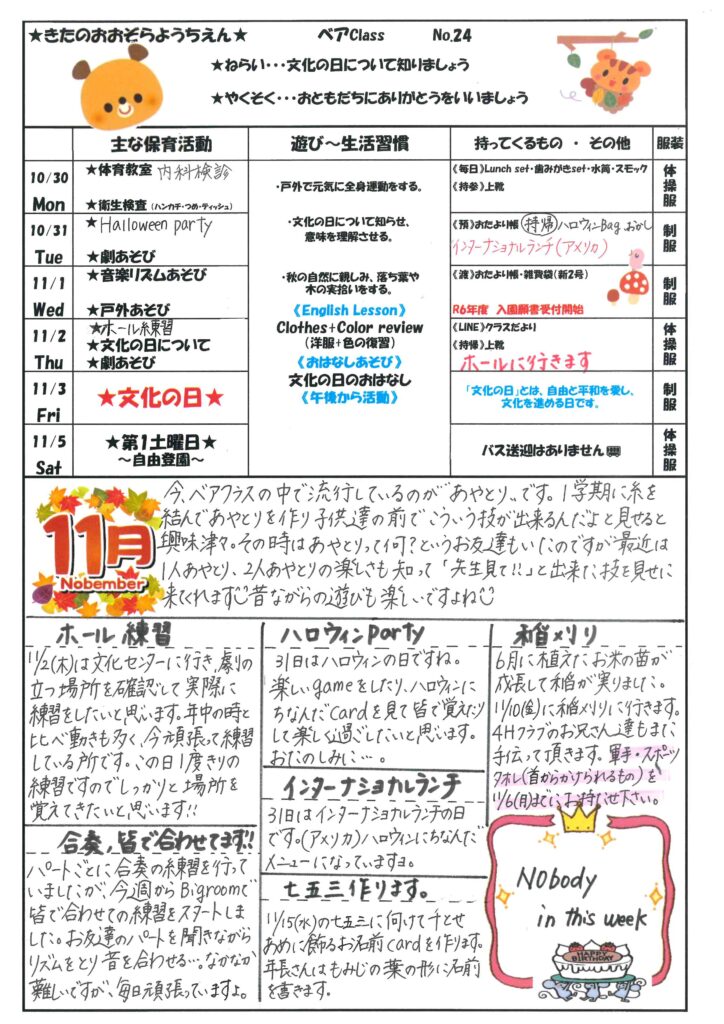 ★きたのおおぞらようちえん★ ベアClass No.24
★ねらい・・・文化の日について知りましょう
★やくそく・・・おともだちにありがとうをいいましょう
主な保育活動 遊び～生活習慣 持ってくるもの ・ その他 服装
10/30 Mon
★体育教室 内科検診
★衛生検査 (ハンカチ・つめ・ティッシュ)
《毎日》Lunch set・歯みがきset・水筒・スモック
《持参》上靴
体操服
10/31 Tue
★Halloween party
★劇あそび
《預》おたより帳 持帰 ハロウィンBag おかし
インターナショナルランチ(アメリカ)
制服
11/1 Wed
★音楽リズムあそび
★戸外あそび
《渡》おたより帳・雑貨袋(新2号)
R6年度 入園願書受付開始
制服
11/2 Thu
★ホール練習
★文化の日について
★劇あそび
《LINE》クラスだより
《持帰》上靴
ホールに行きます
体操服
11/3 Fri
★文化の日★
「文化の日」とは、自由と平和を愛し、
文化を進める日です。
制服
11/5 Sat
★第1土曜日★
～自由登園～
バス送迎はありません
体操服
・戸外で元気に全身運動をする。
・文化の日について知らせ、
意味を理解させる。
・秋の自然に親しみ、落ち葉や
木の実拾いをする。
《English Lesson》
Clothes+Color review
(洋服+色の復習)
《おはなしあそび》
文化の日のおはなし
《午後から活動》
11月
Nobember
今、ベアクラスの中で流行しているのが"あやとり"です。1学期に糸を
結んであやとりを作り子供達の前でこういう技が出来るんだよと見せると
興味津々。その時はあやとりって何?というお友達もいたのですが最近は
1人あやとり、2人あやとりの楽しさも知って「先生見て!!」と出来た技を見せに
来てくれます 昔ながらの遊びも楽しいですよね
ホール練習
11/2(木)は文化センターに行き、劇の
立つ場所を確認して実際に
練習をしたいと思います。年中の時と
比べ動きも多く、今頑張って練習
している所です。この日1度きりの
練習ですのでしっかりと場所を
覚えてきたいと思います!!
合奏、皆で合わせてます!!
パートごとに合奏の練習を行って
いましたが、今週からBigroomで
皆で合わせての練習をスタートしま
した。お友達のパートを聞きながら
リズムをとり音を合わせる…。なかなか
難しいですが、毎日頑張っていますよ。
ハロウィンparty
31日はハロウィンの日ですね。
楽しいgameをしたり、ハロウィンに
ちなんだcardを見て皆で覚えたり
して楽しく過ごしたいと思います。
おたのしみに…。
インターナショナルランチ
31日はインターナショナルランチの日
です。(アメリカ)ハロウィンにちなんだ
メニューになっていますョ。
七五三作ります。
11/15(水)の七五三に向けて千とせ
あめに飾るお名前cardを作ります。
年長さんはもみじの葉の形に名前
を書きます。
稲メリリ
6月に植えたお米の苗が
成長して稲が実りました。
11/10(金)に稲メリリに行きます。
4Hクラブのお兄さん達もまた
手伝って頂きます。軍手・スポーツ
タオル(首からかけられるもの)を
11/6(月)までにお持たせ下さい。
Nobody
in this week
HAPPY
BIRTHDAY